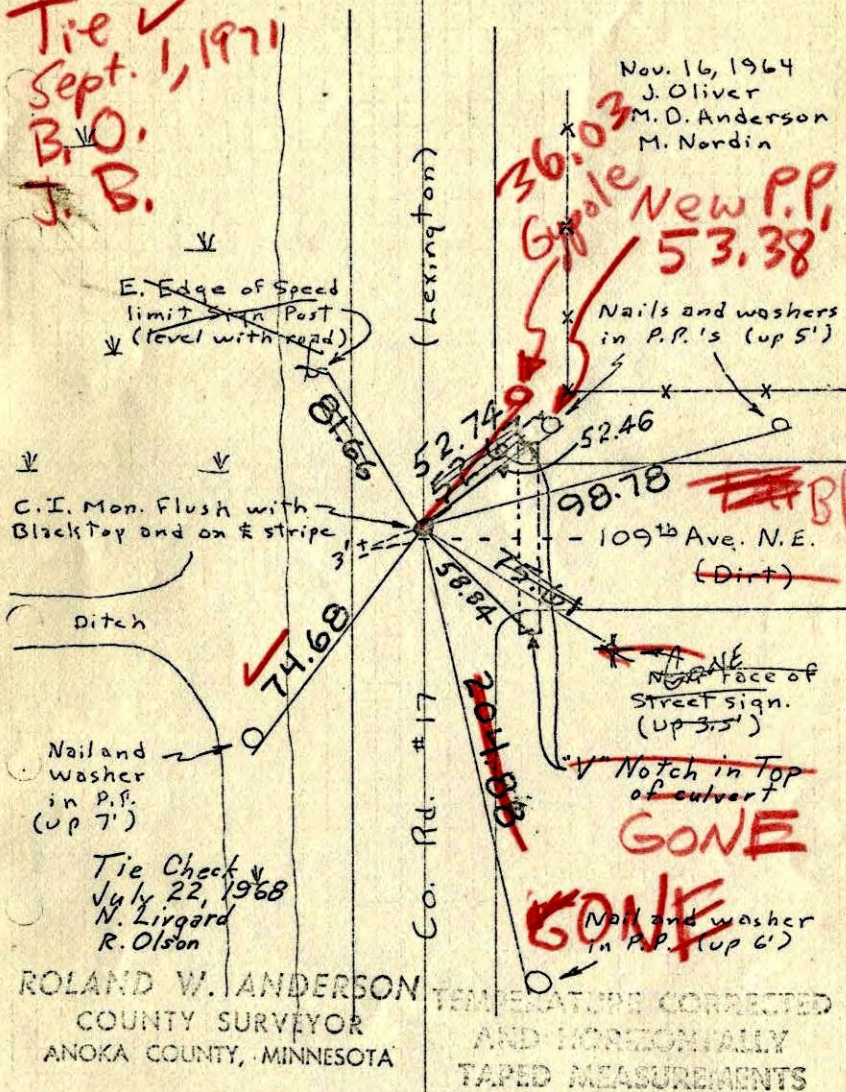 Tie ✓
Sept. 1, 1971
B.O.
J. B.
Nov. 16, 1964
J. Oliver
M. D. Anderson
M. Nordin
36.03
Gypole
New P.P.
53.38
(Lexington)
E. Edge of Speed
limit Sign Post
(level with road)
Nails and washers
in P.P.'s (up 5')
81.66
52.74
52.46
98.78
C.I. Mon. Flush with
Blacktop and on ℄ stripe
3'±
109th Ave. N.E.
(Dirt)
B
Ditch
58.84
74.68
✓
204.88
GONE
face of
Street sign.
(up 3.5')
Nail and
washer
in P.P.
(up 7')
"V" Notch in Top
of culvert
GONE
Co. Rd. #17
Tie Check
July 22, 1968
N. Livgard
R. Olson
GONE
Nail and washer
in P.P. (up 6')
ROLAND W. ANDERSON
COUNTY SURVEYOR
ANOKA COUNTY, MINNESOTA
TEMPERATURE CORRECTED
AND HORIZONTALLY
TAPED MEASUREMENTS